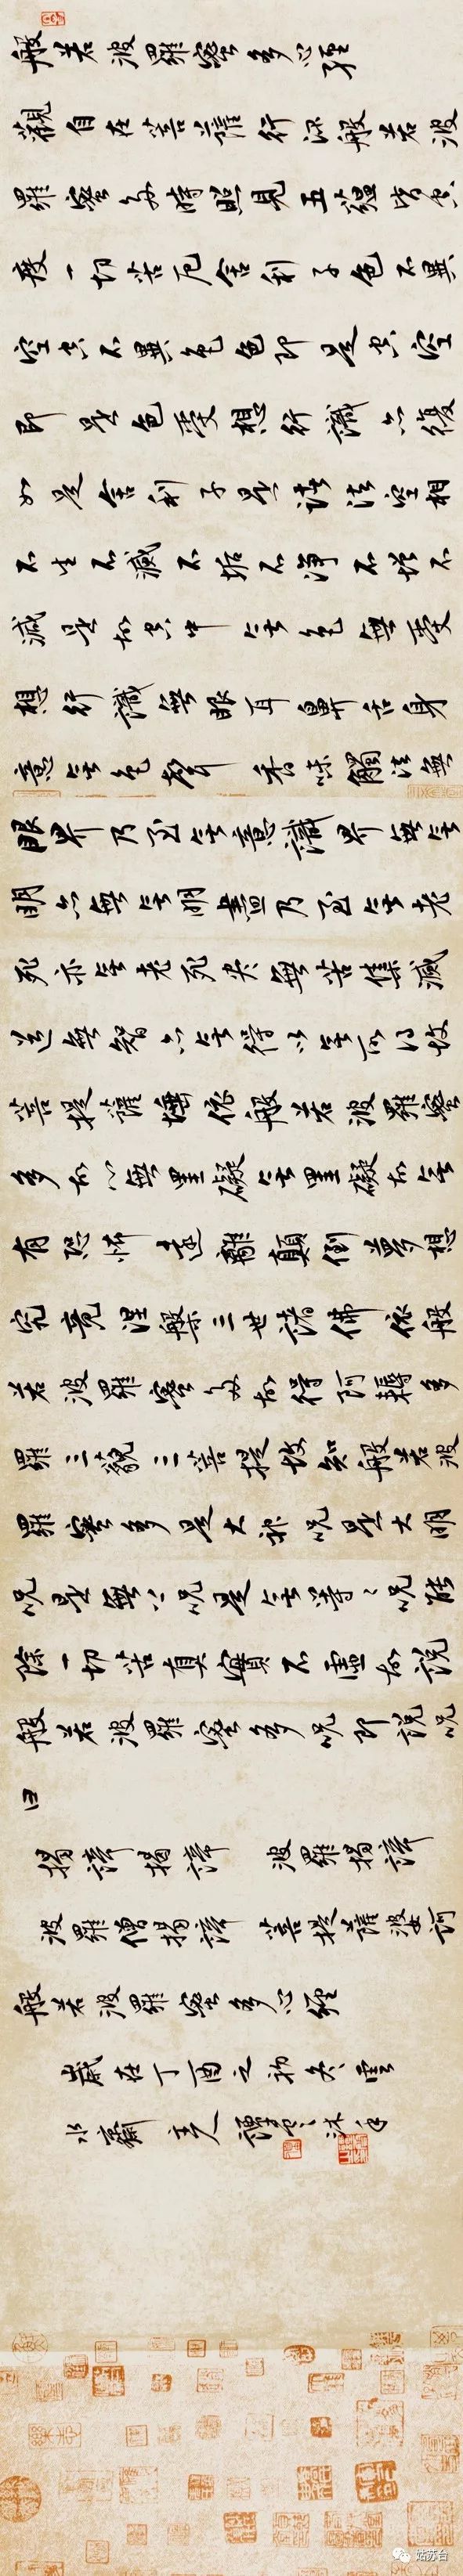 般若波羅蜜多心經
觀自在菩薩行深般若波
羅蜜多時照見五蘊皆空
度一切苦厄舍利子色不異
空空不異色色即是空空
即是色受想行識亦復
如是舍利子是諸法空相
不生不滅不垢不淨不增不
減是故空中無色無受
想行識無眼耳鼻舌身
意無色聲香味觸法無
眼界乃至無意識界無無
明亦無無明盡乃至無老
死亦無老死盡無苦集滅
道無智亦無得以無所得故
菩提薩埵依般若波羅蜜
多故心無罣礙無罣礙故無
有恐怖遠離顛倒夢想
究竟涅槃三世諸佛依般
若波羅蜜多故得阿耨多
羅三藐三菩提故知般若波
羅蜜多是大神咒是大明
咒是無上咒是無等〻咒能
除一切苦真實不虛故說
般若波羅蜜多咒即說咒
曰
揭諦揭諦 波羅揭諦
波羅僧揭諦 菩提薩婆訶
般若波羅蜜多心經
歲在丁酉之初冬雲
水齋主人譚沐手
姑苏台